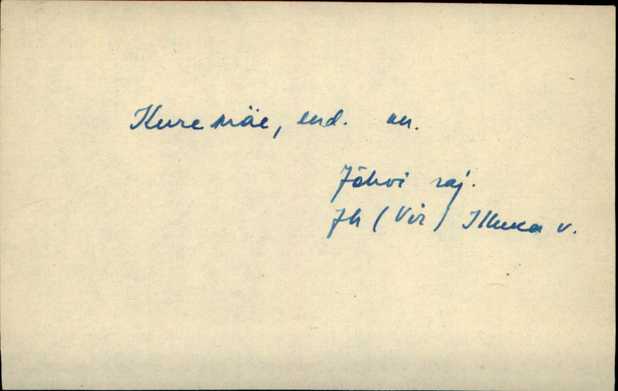 Kuremäe, end. as.
Jõhvi raj.
Jh (Vir) Illuka v.